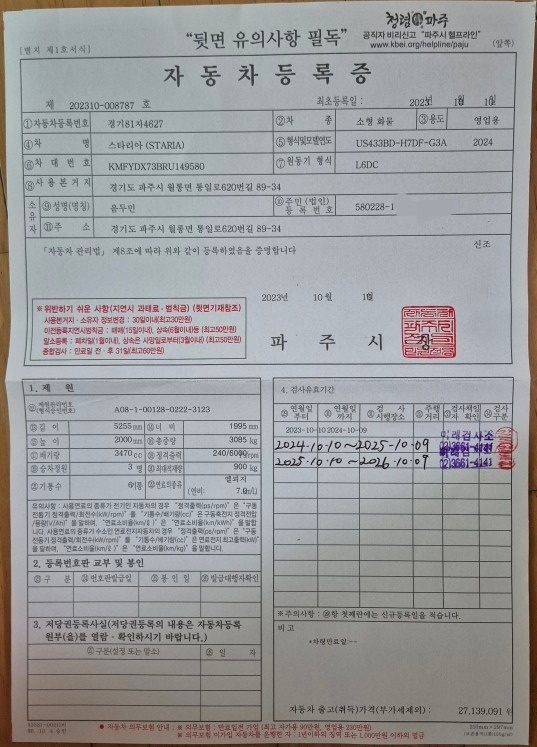 [별지 제1호서식]
"뒷면 유의사항 필독"
청렴 파주
공직자 비리신고 "파주시 헬프라인"
www.kbei.org/helpline/paju
(앞쪽)
자동차등록증
제 202310-008787 호
최초등록일 :
①자동차등록번호 경기81자4627 ②차 종 소형 화물 ③용도 영업용
④차 명 스타리아 (STARIA) ⑤형식및모델연도 US433BD-H7DF-G3A 2024
⑥차 대 번 호 KMFYDX73BRU149580 ⑦원동기 형식 L6DC
⑧사 용 본 거 지 경기도 파주시 월롱면 통일로620번길 89-34
소유자 ⑨성명(명칭) 윤두민 ⑩주민(법인)등록번호 580228-1
⑪주 소 경기도 파주시 월롱면 통일로620번길 89-34
「자동차 관리법」 제8조에 따라 위와 같이 등록하였음을 증명합니다 신조
2023년 10월
※위반하기 쉬운 사항(지연시 과태료·범칙금) (뒷면기재참조)
사용본거지·소유자 정보변경 : 30일이내(최고30만원)
이전등록지연시범칙금 : 매매(15일이내), 상속(6월이내)등 (최고50만원)
말소등록 : 폐차일(1월이내), 상속은 사망일로부터(3월이내) (최고50만원)
종합검사 : 만료일 전·후 31일(최고60만원)
파 주 시 장
1. 제 원
⑫제원관리번호(형식승인번호) A08-1-00128-0222-3123
⑬길 이 5255 mm ⑭너 비 1995 mm
⑮높 이 2000 mm ⑯총중량 3085 kg
⑰배기량 3470 cc ⑱정격출력 240/6000
⑲승차정원 3 명 ⑳최대적재량 900 kg
㉑기통수 6기통 ㉒연료의종류 엘피지
(연비:
유의사항 : 사용연료의 종류가 전기인 자동차의 경우 "정격출력(ps/rpm)"은 "구동전동기 정격출력/회전수(kW/rpm)"를 "기통수/배기량(cc)"은 구동축전지 정격전압/용량(V/Ah)"를 말하며, "연료소비율(km/ℓ)"은 "연료소비율(km/kWh)"을 말합니다. 사용연료의 종류가 수소인 연료전지자동차의 경우 "정격출력(ps/rpm)"은 "구동전동기 정격출력/회전수(kW/rpm)"를 "기통수/배기량(cc)"은 연료전지 최고출력(kW)를 말하며, "연료소비율(km/ℓ)"은 "연료소비율(km/kg)"을 말합니다.
2. 등록번호판 교부 및 봉인
㉓구 분 ㉔번호판발급일 ㉕봉 인 일 ㉖발급대행자확인
3. 저당권등록사실(저당권등록의 내용은 자동차등록
원부(을)를 열람·확인하시기 바랍니다.)
㉗구분(설정 또는 말소) ㉘일 자
4. 검사유효기간
연월일부터 연월일까지 검 사 시행장소 주행거리 검사책임자확인 검사구분
2023-10-10 2024-10-09
2024-10-10~2025-10-09 미래검사소
02)3661-4141
2025-10-10~2026-10-09 02)3661-4141
※주의사항 : ㉙항 첫째란에는 신규등록일을 적습니다.
비 고
*차령만료일:--
자동차 출고(취득)가격(부가세제외) : 27,139,091 원
● 자동차 의무보험 안내 : ※ 의무보험 : 만료일전 가입 (최고 자가용 90만원, 영업용 230만원)
※ 의무보험 미가입 자동차를 운행한 자 : 1년이하의 징역 또는 1,000만원 이하의 벌금